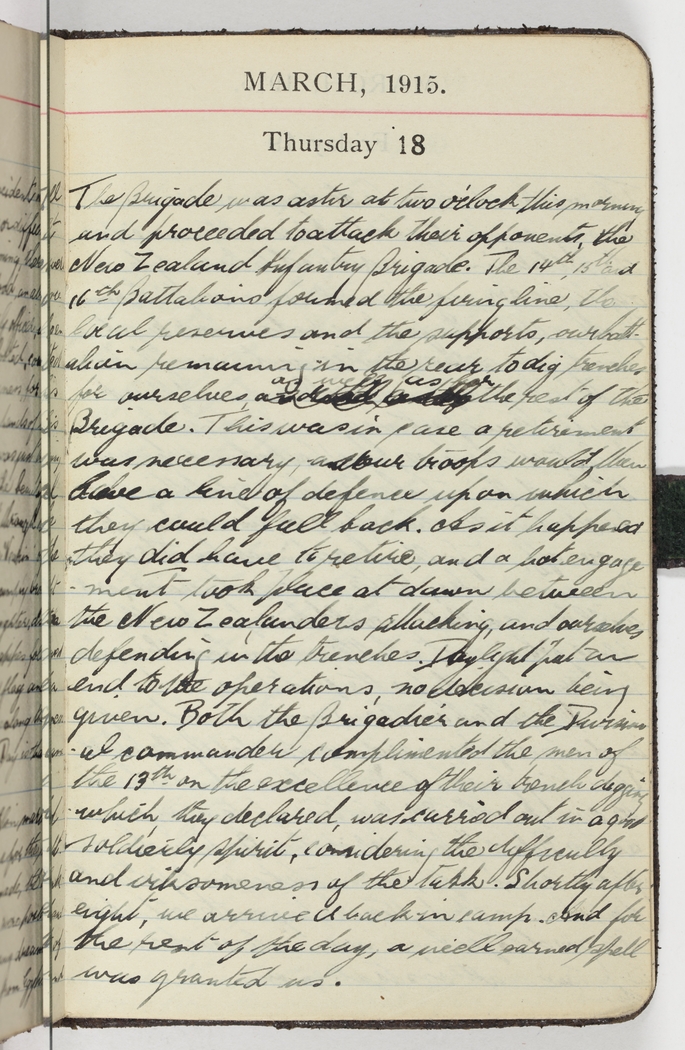 MARCH, 1915.
Thursday 18
The Brigade was astir at two o'clock this morning
and proceeded to attack their opponents, the
New Zealand Infantry Brigade. The 14th, 15th and
16th Battalions formed the firing line, the
local reserves and the supports, our batt-
alion remaining in the rear to dig trenches
for ourselves as well as for the rest of the
Brigade. This was in case a retirement
was necessary and our troops would then
have a line of defence upon which
they could fall back. As it happened
they did have to retire, and a hot engage
-ment took place at dawn between
the New Zealanders attacking, and ourselves
defending in the trenches. Daylight put an
end to the operations, no decision being
given. Both the Brigadier and the Division
-al commander complimented the men of
the 13th on the excellence of their trench digging
which, they declared, was carried out in a good
soldierly spirit, considering the difficulty
and irksomeness of the task. Shortly after
eight, we arrived back in camp. And for
the rest of the day, a well earned spell
was granted us.